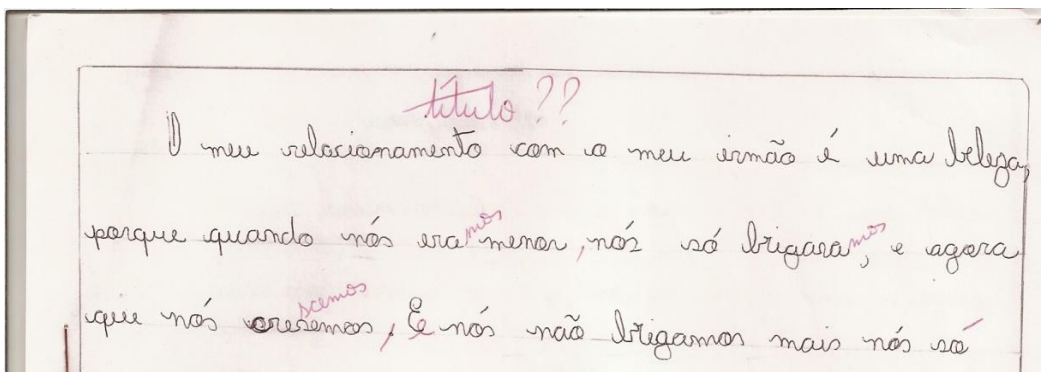 título ??
O meu relacionamento com o meu irmão é uma beleza,
mos mos
porque quando nós era menor, nóz só brigara, e agora
scemos
que nós cresemos, E nós não brigamos mais nós só